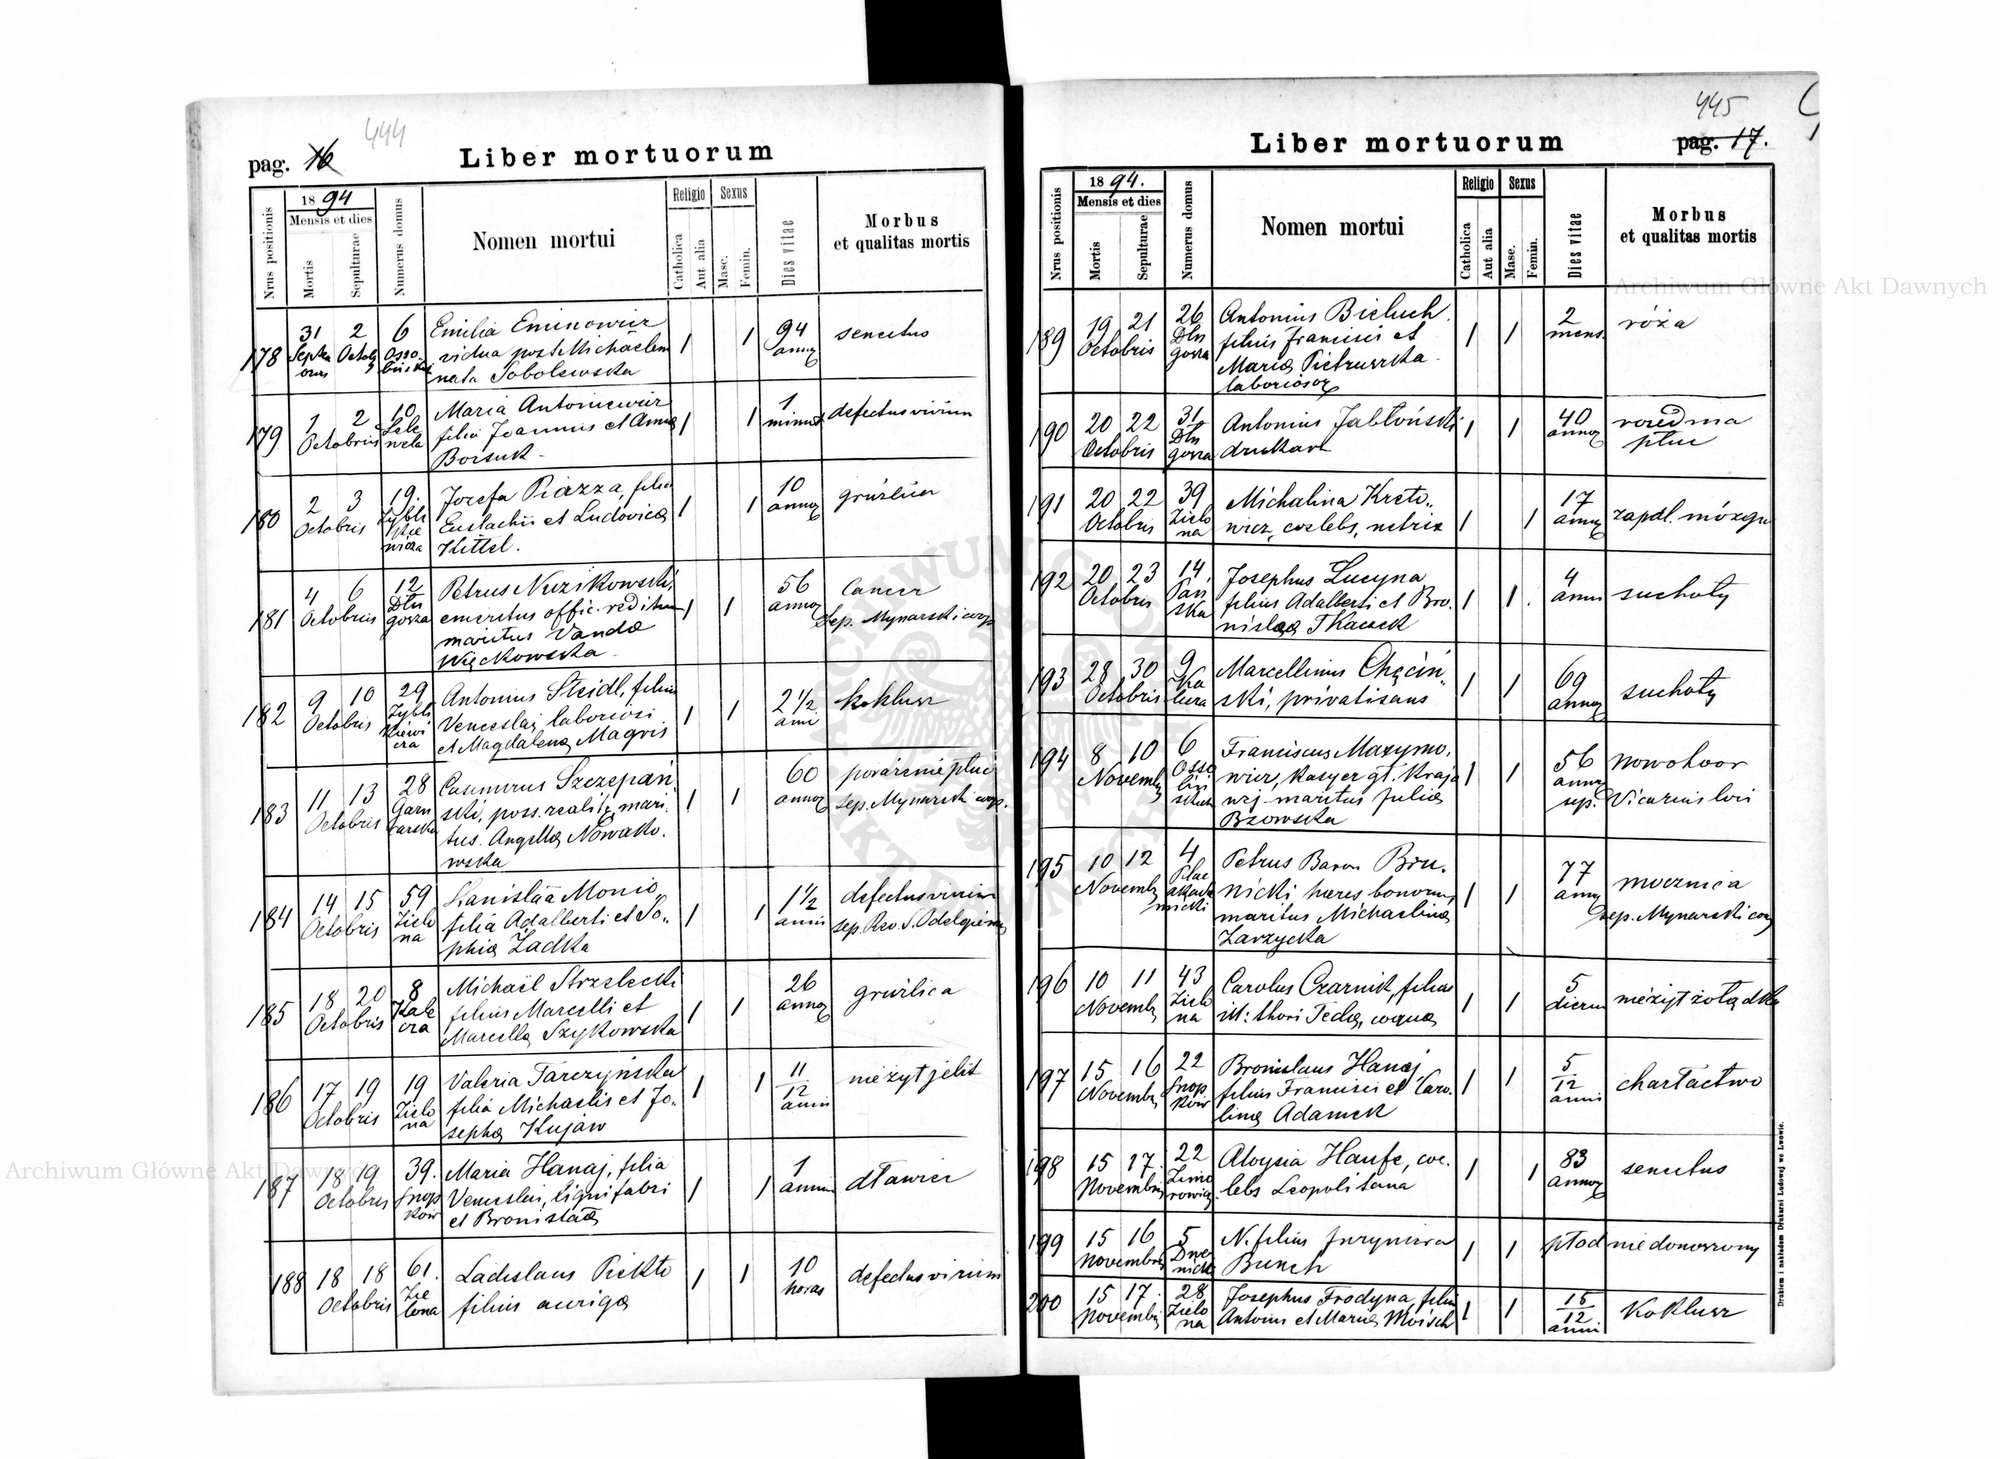 444
pag. 16
Liber mortuorum
Nrus positionis
18 94
Mensis et dies
Mortis
Sepulturae
Numerus domus
Nomen mortui
Religio
Catholica
Aut alia
Sexus
Masc.
Femin.
Dies vitae
Morbus
et qualitas mortis
178 31 2 6 Emilia Eminowicz 1 1 94 senectus
Octob vidua post Michaelem
nata Sobolewska
179 1 2 10 Maria Antoniewicz 1 1 1 defectus virium
Octobris filia Joannis et Anna
Borsuk
180 2 3 19. Josefa Piazza, filia 1 1 10 gruźlica
Octobris Eustachii et Ludovica
Kittel.
181 4 6 12 Petrus Nuzikowski, 1 1 56 Cancer
Octobris emeritus offic. redituum Sep. Mynarski coop
maritus Vanda
Więckowska
182 9 10 29 Antonius Steidl, filius 1 1 2 1/2 koklusz
Octobris Venceslai laboriosi
et Magdalena Magris
183 11 13 28 Casimirus Szczepań 1 1 60 porażenie płuc
Octobris ski, poss. realit, mari sep. Mynarski coop.
tus. Angela Nowako.
wska
184 14 15 59 Stanislaa Monio, 1 1 1 1/2 defectus virium
Octobris Zielo filia Adalberti et So..
na phia Żadka
185 18 20 8 Michaël Strzelecki 1 1 26 gruźlica
Octobris filius Marcelli et
Marcella Szykowska
186 17 19 19 Valeria Tarczyńska 1 1 11/12 nieżyt jelit
Octobris Zielo filia Michaelis et Jo..
na sepha Kujaw
187 18 19 39. Maria Hanaj, filia 1 1 1 dławiec
Octobris Snop Venceslai, lignifabri
ków et Bronislaa
188 18 18 61. Ladislaus Piekto 1 1 10 defectus virium
Octobris Zie filius auriga horas
lona
445
Liber mortuorum
pag. 17.
Nrus positionis
18 94.
Mensis et dies
Mortis
Sepulturae
Numerus domus
Nomen mortui
Religio
Catholica
Aut alia
Sexus
Masc.
Femin.
Dies vitae
Morbus
et qualitas mortis
189 19 21 26 Antonius Bieluch 1 1 2 róża
Octobris Dłu filius Francisci et mens.
gosza Maria Pietruszka
laboriosor
190 20 22 31 Antonius Jabłoński 1 1 40 rozedma
Octobris Dłu drukarz płuc
gosza
191 20 22 39 Michalina Kreto.. 1 1 17 zapal. mózgu
Octobris Zielo wicz, coelebs, netrix
na
192 20 23 14. Josephus Lucyna 1 1 4 suchoty
Octobris Pań filius Adalberti et Bro. anni
ska nislaa Tkaczek
193 28 30 9 Marcellinus Chęciń.. 1 1 69 suchoty
Octobris ski, privatisans
194 8 10 6 Franciscus Maxymo. 1 1 56 nowotwor
Novemb Osso wicz, kasyer gł. Krajo
liń wej maritus Julia sep. Vicarius loci
skich Bzowska
195 10 12 4 Petrus Baron Bru. 1 1 77 mocznica
Novemb nicki haeres bonorum, sep. Mynarski coop
maritus Michaelina
Zarzycka
196 10 11 43 Carolus Czarnik, filius 1 1 5 nieżyt żołądka
Novemb Zielo ill: thori Tecla, coqua dierum
na
197 15 16 22 Bronislaus Hanaj 1 1 5/12 charłactwo
Novemb Snop filius Francisci et Caro. anni
ków lina Adamek
198 15 17. 22 Aloysia Haufe, coe. 1 1 83 senectus
Novembris Zimo lebs Leopolitana
rowicz
199 15 16 5 N. filius inzyniera 1 1 płod niedonoszony
Novembris Bunch
200 15 17. 28 Josephus Frodyna, filius 1 1 15/12 Koklusz
Novembris Zielo Antonii et Maria Moisch anni
na
Drukiem i nakładem Drukarni Ludowej we Lwowie.
Archiwum Główne Akt Dawnych
Archiwum Główne Akt Dawnych